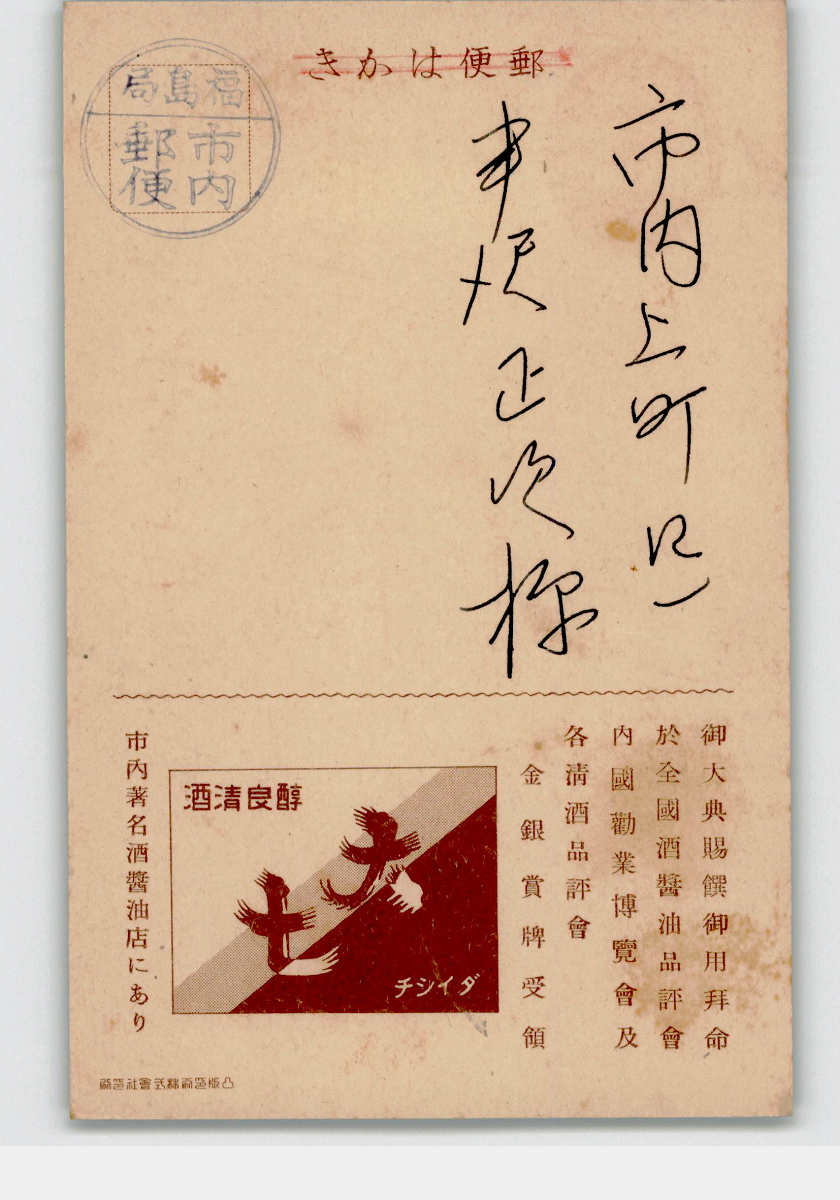 郵便はかき
福島局
市内
郵便
市内上町
正次様
御大典賜饌御用拜命
於全國酒醬油品評會
内國勸業博覽會及
各淸酒品評會
金銀賞牌受領
醇良清酒
大七
ダイシチ
市內著名酒醬油店にあり
凸版印刷株式會社印刷